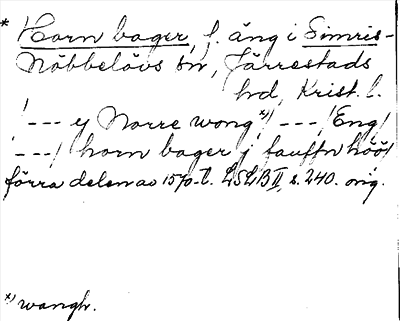 * Horn bager, f. äng i Simris-
Nöbbelövs sn, Järrestads
hd, Krist. l.
/--- ey Norre wong *)/ ---/Eng/
---/ horn bager j fauffn höö/
förra delen av 1570-t. LSLB II, s. 240. orig.
*) wangh.